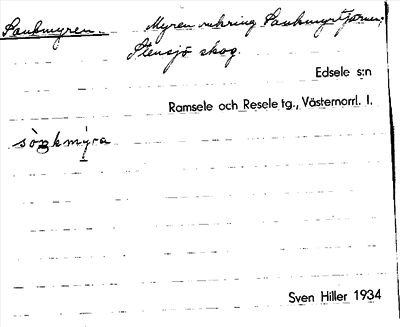 Saukmyren. Myren omkring Saukmyrtjärnen,
Stensjö skog.
Edsele s:n
Ramsele och Resele tg., Västernorrl. l.
sòukmýra
Sven Hiller 1934